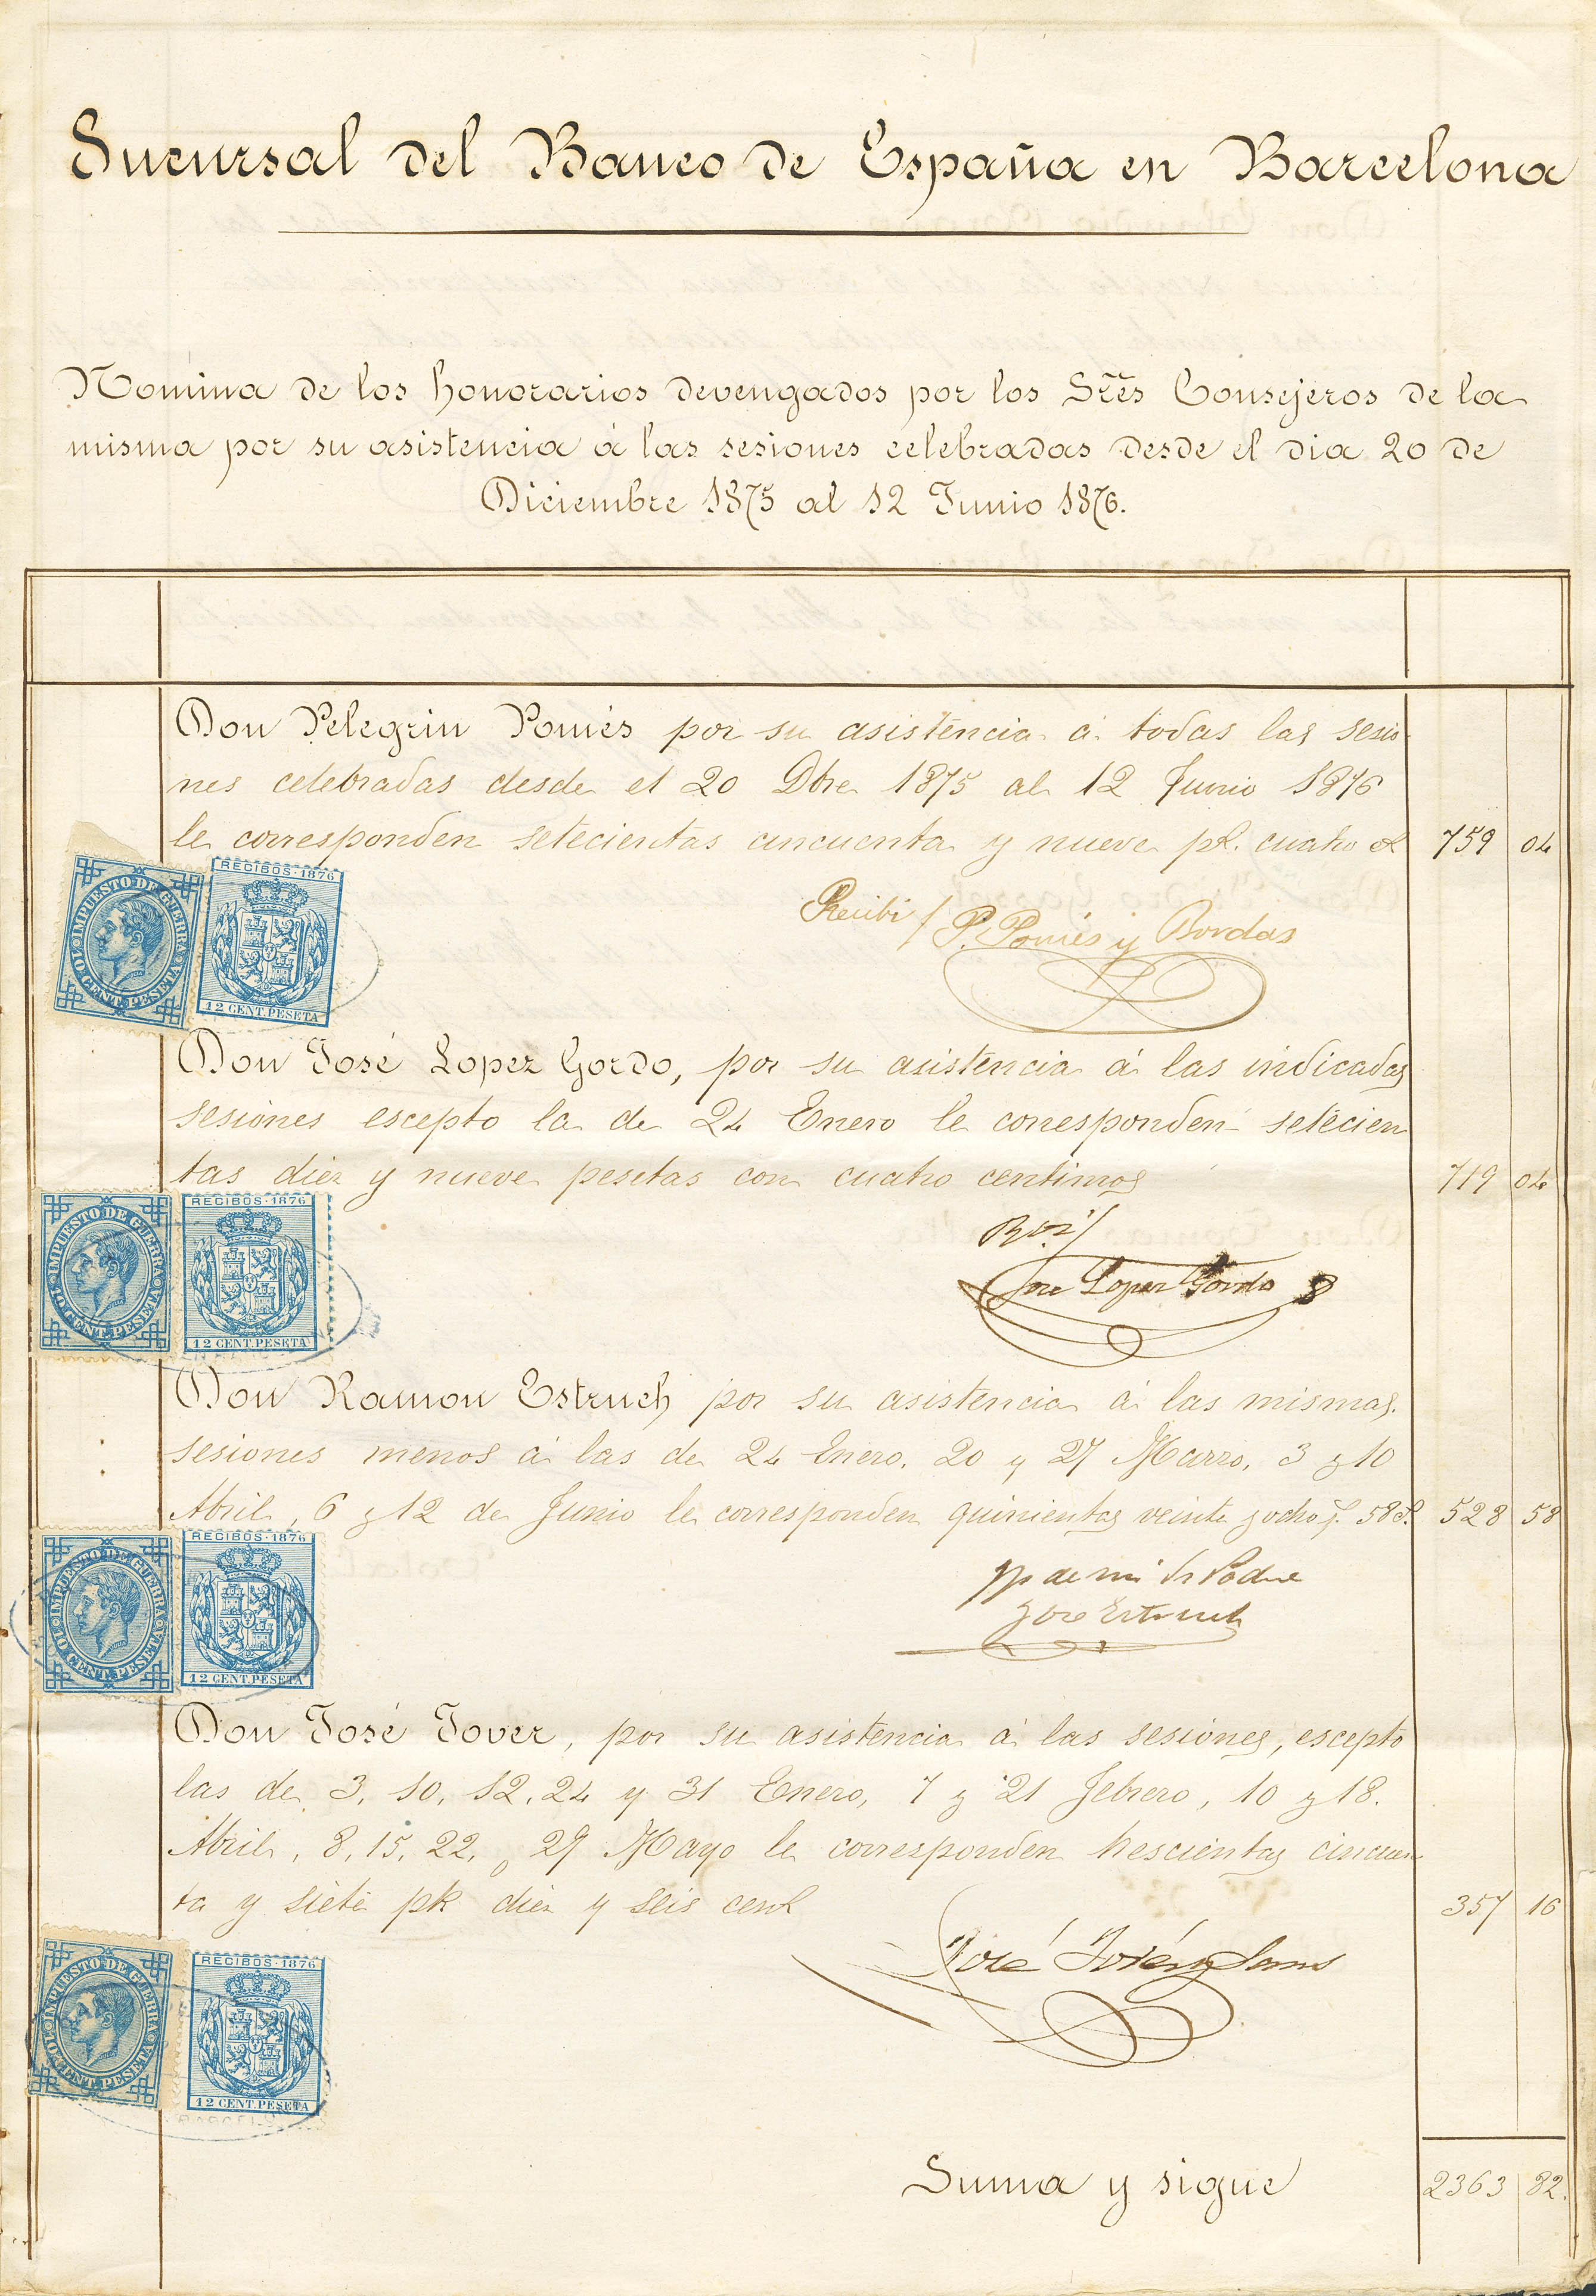 Sucursal del Banco de España en Barcelona
Nomina de los honorarios devengados por los Sres Consejeros de la
misma por su asistencia á las sesiones celebradas desde el dia 20 de
Diciembre 1875 al 12 Junio 1876.
Don Pelegrin Pomés por su asistencia á todas las sesio
nes celebradas desde el 20 Dbre 1875 al 12 Junio 1876
le corresponden setecientas cincuenta y nueve pt. cuatro ct 759 04
RECIBOS - 1876
IMPUESTO DE GUERRA
10 CENT. PESETA
12 CENT. PESETA
Recibi / P. Pomés y Bordas
Don José Lopez Gordo, por su asistencia á las indicadas
sesiones escepto la de 24 Enero le corresponden setecien
tas diez y nueve pesetas con cuatro centimos 719 04
RECIBOS - 1876
IMPUESTO DE GUERRA
10 CENT. PESETA
12 CENT. PESETA
Jose Lopez Gordo
Don Ramon Estruch por su asistencia á las mismas
sesiones menos á las de 24 Enero, 20 y 27 Marzo, 3 y 10
Abril, 6 y 12 de Junio le corresponden quinientas veinte y ocho p. 58 c. 528 58
RECIBOS - 1876
IMPUESTO DE GUERRA
10 CENT. PESETA
12 CENT. PESETA
de mi Sr Padre
Jose Estruch
Don José Jover, por su asistencia á las sesiones, escepto
las de 3, 10, 12, 24 y 31 Enero, 7 y 21 Febrero, 10 y 18.
Abril, 8, 15, 22, 29 Mayo le corresponden trescientas cincuen
ta y siete pt diez y seis cent 357 16
RECIBOS - 1876
IMPUESTO DE GUERRA
10 CENT. PESETA
12 CENT. PESETA
José Jover y
Suma y sigue 2363 82.